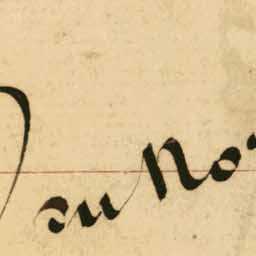 au No